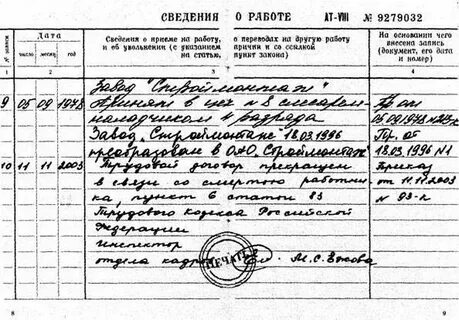 СВЕДЕНИЯ О РАБОТЕ АТ-VIII № 9279032
№ записи
Дата
число месяц год
Сведения о приеме на работу, о переводах на другую работу
и об увольнении (с указанием причин и со ссылкой
на статью, пункт закона)
На основании чего
внесена запись
(документ, его дата
и номер)
1 2 3 4
Завод "Строймонтаж"
9 05 09 1978 Принят в цех №8 слесарем-
наладчиком 4 разряда 05.09.1978
Завод "Строймонтаж" 18.03.1996 Пр. от
преобразован в ОАО "Строймонтаж" 18.03.1996 №1
10 11 11 2003 Трудовой договор прекращен Приказ
в связи со смертью работни- от 11.11.2003
ка, пункт 6 статьи 83 № 93-к
Трудового кодекса Российской
Федерации
Инспектор
отдела кадров М.С. Ежова
ПЕЧАТЬ
8 9